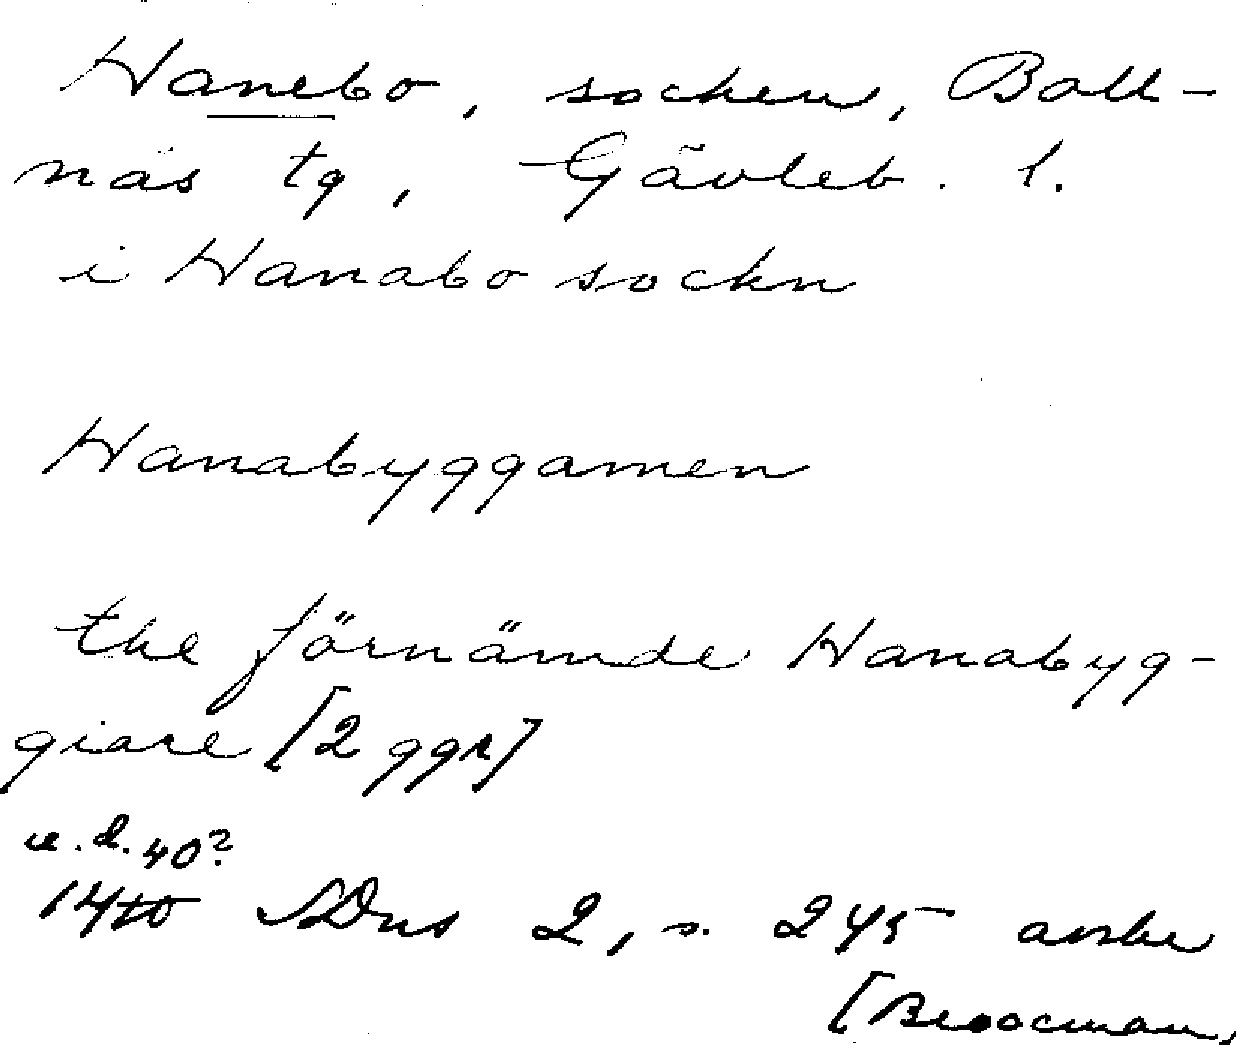 Hanebo, socken, Boll-
näs tg, Gävleb. l.
i Hanabo sockn
Hanabyggamen
the förnämde Hanabyg-
giare [2 ggr]
u.d. 40?
14 SDns 2, s. 245 avskr
[Broocman,